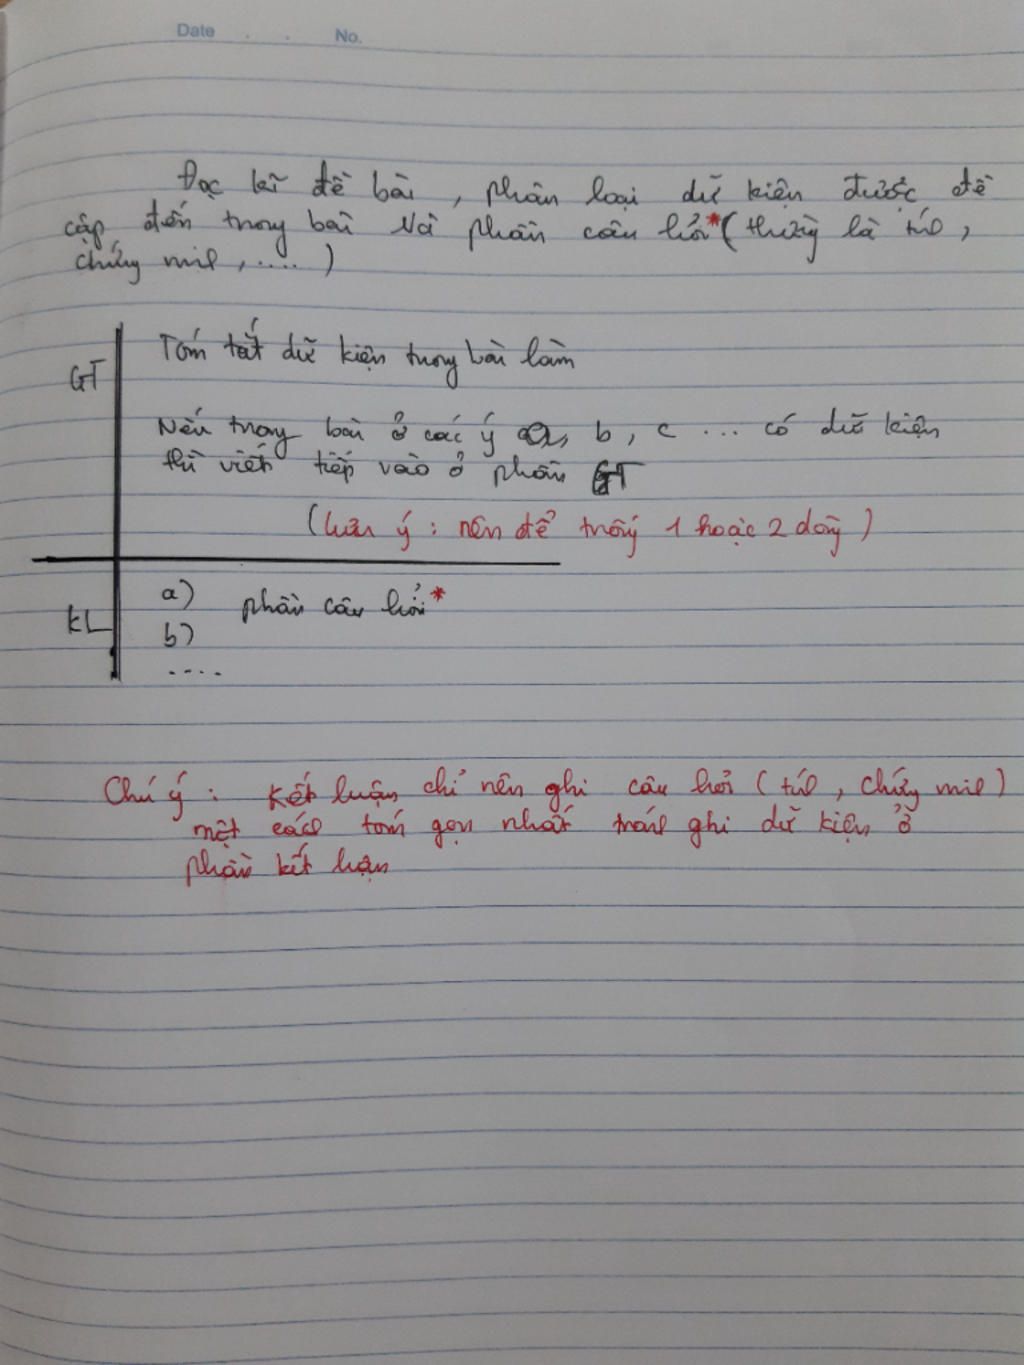 Date . . No.
Đọc kĩ đề bài, phân loại dữ kiện được đề
cập đến trong bài và phần câu hỏi* (thường là tính,
chứng minh, .... )
Tóm tắt dữ kiện trong bài làm
GT
Nếu trong bài ở các ý a, b, c ... có dữ kiện
thì viết tiếp vào ở phần GT
(lưu ý : nên để trống 1 hoặc 2 dòng)
a) phần câu hỏi*
KL
b)
....
Chú ý : Kết luận chỉ nên ghi câu hỏi (tính, chứng minh)
một cách tóm gọn nhất tránh ghi dữ kiện ở
phần kết luận